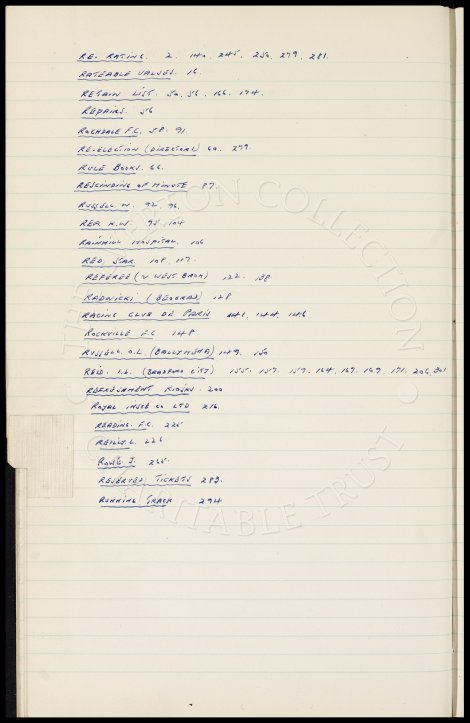 RE-RATING. 2. 140. 245. 250. 279. 281.
RATEABLE VALUES. 16.
RETAIN LIST. 50. 56. 166. 174.
REPAIRS. 56
ROCHDALE F.C. 58. 91.
RE-ELECTION (DIRECTORS) 60. 279.
RULE BOOKS. 66.
RESCINDING OF MINUTE 87.
RUSSELL. W. 92. 96.
REP. K.W. 98. 104
RAINHILL HOSPITAL. 106
RED STAR. 108. 117.
REFEREE (V WEST BROM) 122. 138.
RADNICKI (BEOGRAD) 128
RACING CLUB DE PARIS 141. 144. 146
ROCKVILLE F.C 148
RUSSELL. O.L. (BALLYMENA) 149. 150
REID. I.L. (BRADFORD CITY) 155. 157. 159. 164. 167. 169. 171. 206. 301
REFRESHMENT KIOSKS. 200
ROYAL INSCE CO LTD 216.
READING. F.C. 225
L. 226
ROWE J. 265.
RESERVED TICKETS 283.
RUNNING TRACK 294
COLLECTION
CHARITABLE TRUST